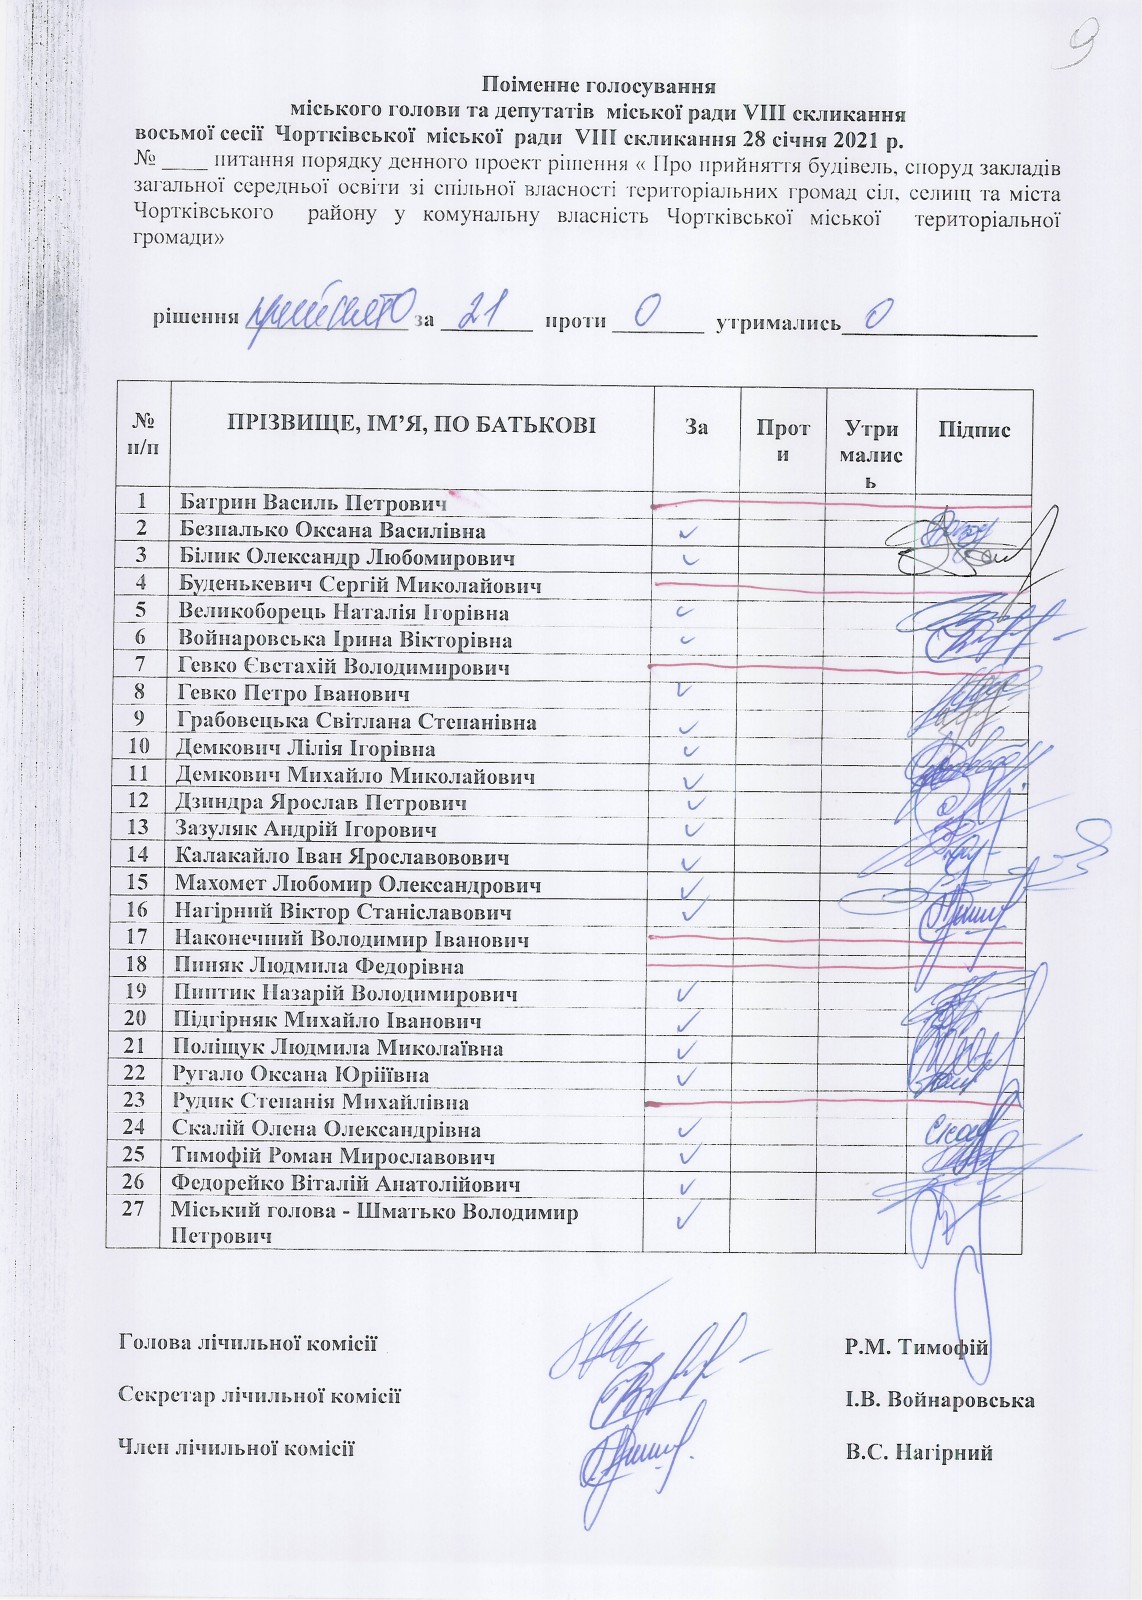 9
Поіменне голосування
міського голови та депутатів міської ради VIII скликання
восьмої сесії Чортківської міської ради VIII скликання 28 січня 2021 р.
№ ____ питання порядку денного проект рішення « Про прийняття будівель, споруд закладів
загальної середньої освіти зі спільної власності територіальних громад сіл, селищ та міста
Чортківського району у комунальну власність Чортківської міської територіальної
громади»
рішення прийнято за 21 проти 0 утримались 0
№ п/п ПРІЗВИЩЕ, ІМ’Я, ПО БАТЬКОВІ За Проти Утрималась Підпис
1 Батрин Василь Петрович
2 Безпалько Оксана Василівна ✓
3 Білик Олександр Любомирович ✓
4 Буденькевич Сергій Миколайович
5 Великоборець Наталія Ігорівна ✓
6 Войнаровська Ірина Вікторівна ✓
7 Гевко Євстахій Володимирович
8 Гевко Петро Іванович ✓
9 Грабовецька Світлана Степанівна ✓
10 Демкович Лілія Ігорівна ✓
11 Демкович Михайло Миколайович ✓
12 Дзиндра Ярослав Петрович ✓
13 Зазуляк Андрій Ігорович ✓
14 Калакайло Іван Ярославовович ✓
15 Махомет Любомир Олександрович ✓
16 Нагірний Віктор Станіславович ✓
17 Наконечний Володимир Іванович
18 Пиняк Людмила Федорівна
19 Пиптик Назарій Володимирович ✓
20 Підгірняк Михайло Іванович ✓
21 Поліщук Людмила Миколаївна ✓
22 Ругало Оксана Юріїївна ✓
23 Рудик Степанія Михайлівна
24 Скалій Олена Олександрівна ✓
25 Тимофій Роман Мирославович ✓
26 Федорейко Віталій Анатолійович ✓
27 Міський голова - Шматько Володимир ✓
Петрович
Голова лічильної комісії Р.М. Тимофій
Секретар лічильної комісії І.В. Войнаровська
Член лічильної комісії В.С. Нагірний